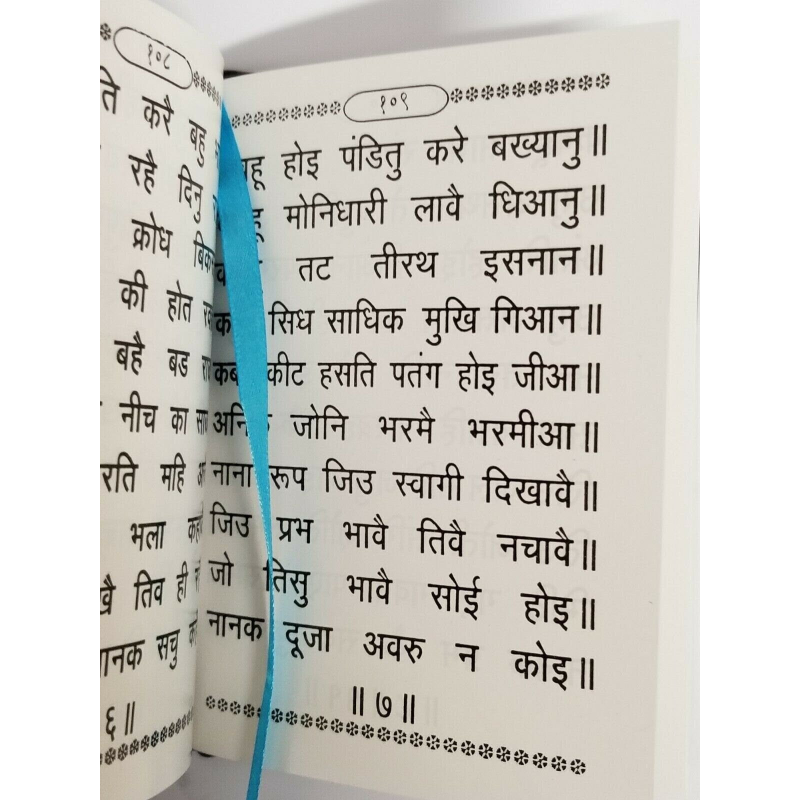 १०८
करै बहु
रहै दिनु
क्रोध
की होत
बहै बड
नीच का
महि
भला
तिव ही
सचु
६॥
१०९
होइ पंडितु करे बख्यानु॥
मोनिधारी लावै धिआनु॥
तट तीरथ इसनान॥
सिध साधिक मुखि गिआन॥
कीट हसति पतंग होइ जीआ॥
जोनि भरमै भरमीआ॥
नाना रूप जिउ स्वागी दिखावै॥
जिउ प्रभ भावै तिवै नचावै॥
जो तिसु भावै सोई होइ॥
नानक दूजा अवरु न कोइ॥
॥७॥